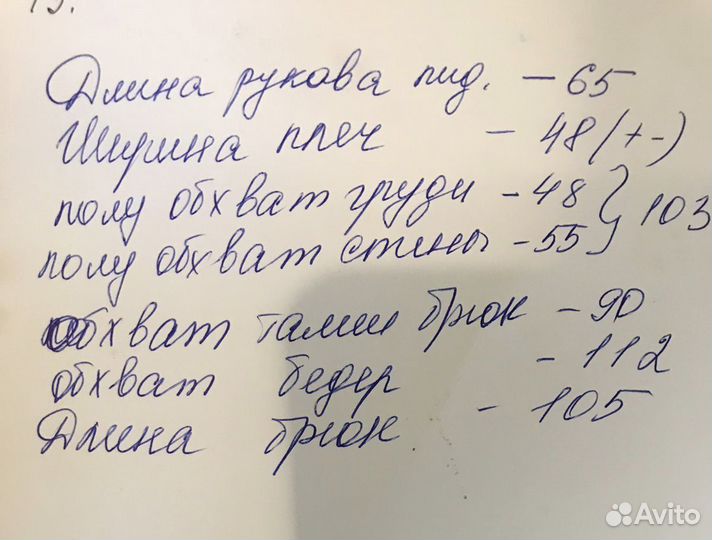 13.
Длина рукова пид. – 65
Ширина плеч – 48 (+-)
полу обхват груди – 48 } 103
полу обхват спины – 55
обхват талии брюк – 90
обхват бедер – 112
Длина брюк – 105
Avito